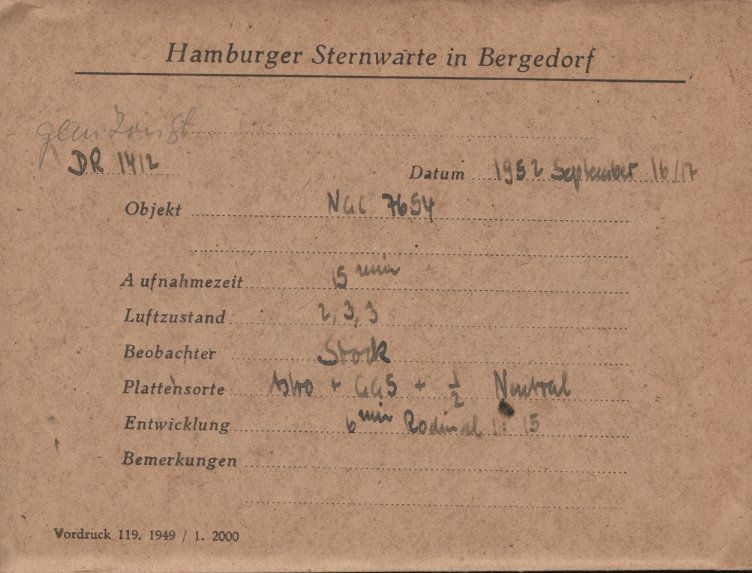 Hamburger Sternwarte in Bergedorf
DR 1412 Datum 1952 September 16/17
Objekt NGC 7654
Aufnahmezeit 15 min
Luftzustand 2, 3, 3
Beobachter Stock
Plattensorte Astro + GG5 + 1/2 Neutral
Entwicklung 6 min Rodinal 1:15
Bemerkungen
Vordruck 119. 1949 / 1. 2000